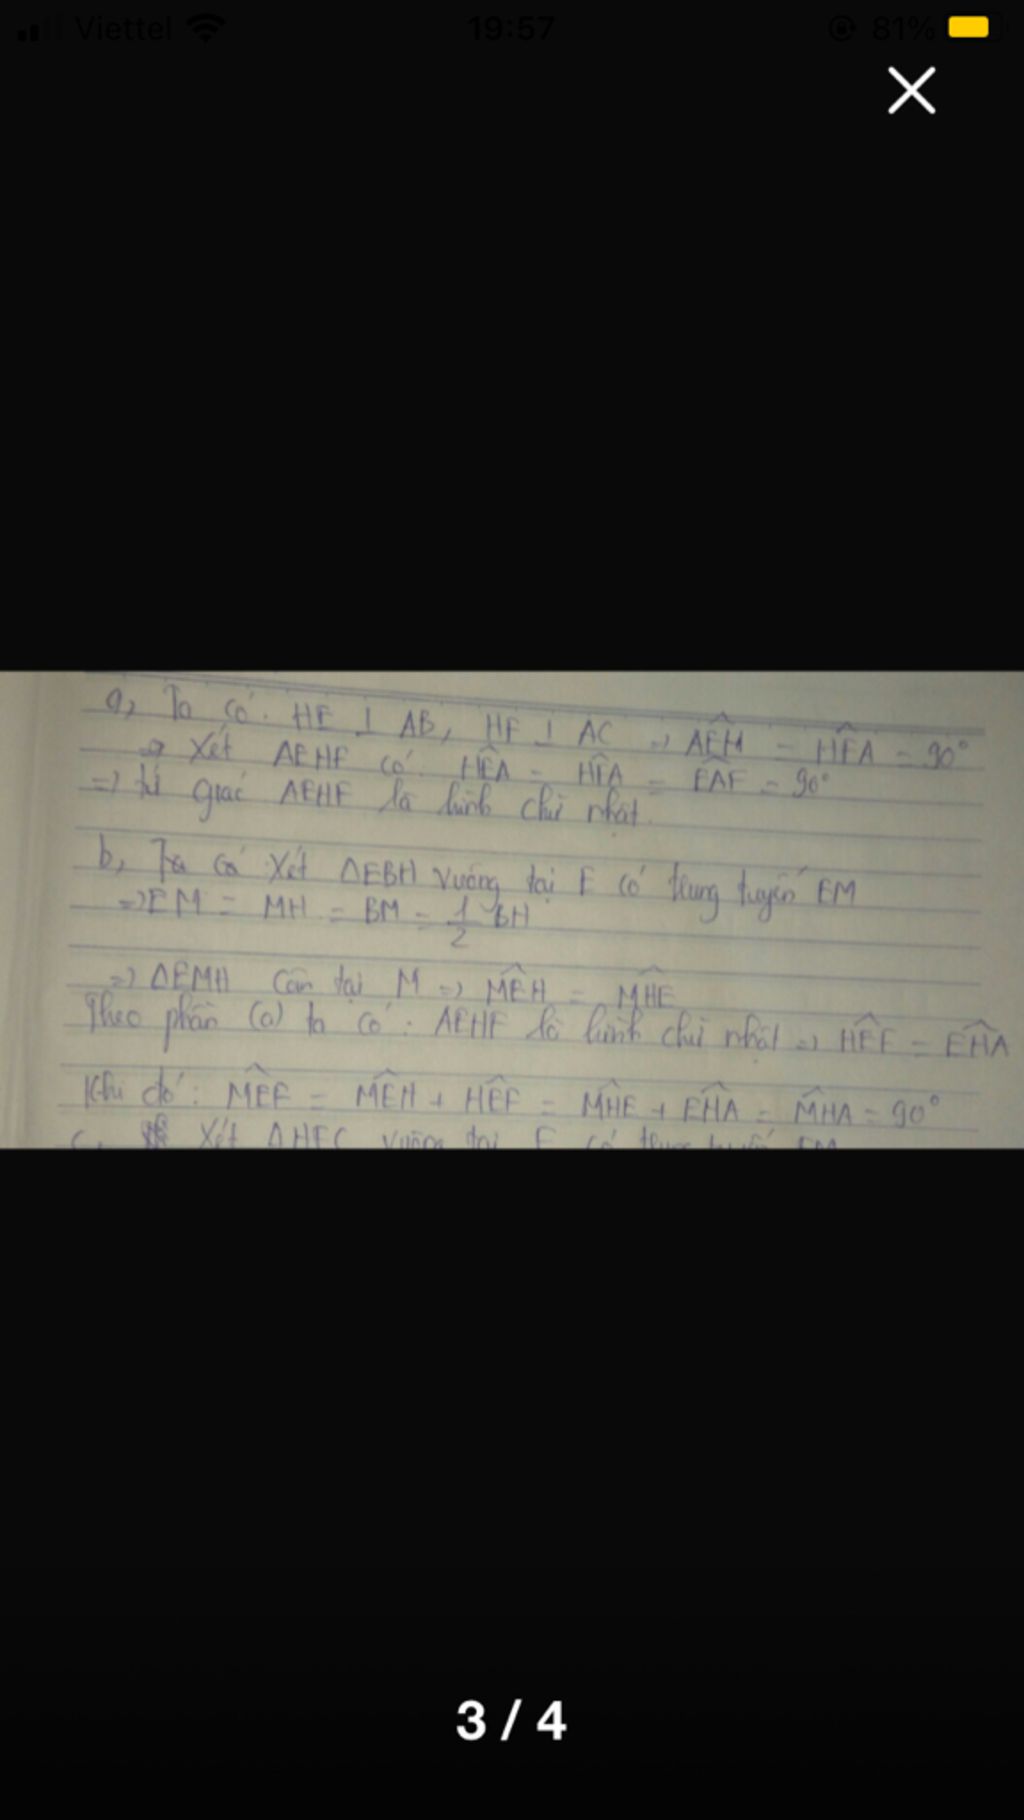 Viettel 19:57 81%
a, Ta có: HE ⊥ AB, HF ⊥ AC => AÊH = HF̂A = 90°
=> Xét AEHF có: HÊA = HF̂A = EÂF = 90°
=> tứ giác AEHF là hình chữ nhật.
b, Ta có Xét ΔEBH vuông tại E có trung tuyến EM
=> EM = MH = BM = 1/2 BH
=> ΔEMH cân tại M => MÊH = MĤE
Theo phần (a) ta có: AEHF là hình chữ nhật => HÊF = EĤA
Khi đó: MÊF = MÊH + HÊF = MĤE + EĤA = MĤA = 90°
c, Xét ΔHFC vuông tại F có trung tuyến
3 / 4